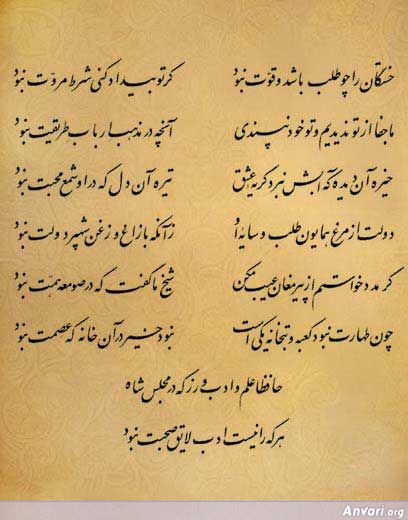 خستگان را چو طلب باشد و قوّت نبود گر تو بیداد کنی شرط مروّت نبود
ما جفا از تو ندیدیم و تو خود نپسندی آنچه در مذهب ارباب طریقت نبود
خیره آن دیده که آبش نبرد گریه عشق تیره آن دل که در او شمع محبت نبود
دولت از مرغ همایون طلب و سایهٔ او زآنکه با زاغ و زغن شهپر دولت نبود
گر مدد خواستم از پیر مغان عیب مکن شیخ ما گفت که در صومعه همت نبود
چون طهارت نبود کعبه و بتخانه یکی است نبود خیر در آن خانه که عصمت نبود
حافظا علم و ادب ورز که در مجلس شاه
هر که را نیست ادب لایق صحبت نبود
Anvari.org